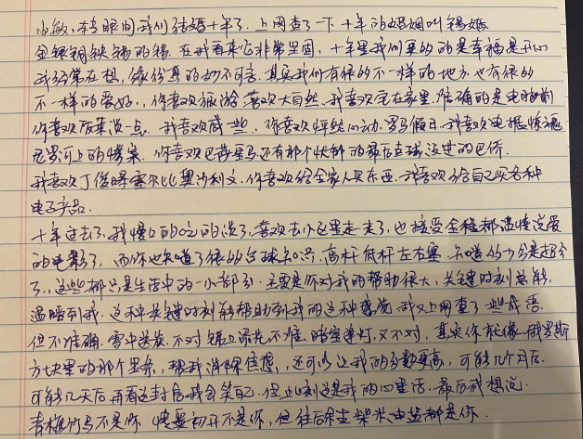 小敏，本与眼间，我们结婚十年了，上网查了一下十年的婚姻叫锡婚
金银铜铁锡的锡，在我看来它非常坚固，十年里我们要的是幸福是开心
我经常在想，缘份真的妙不可言，其实我们有很多不一样的地方，也有很多
不一样的爱好，你喜欢旅游 喜欢大自然，我喜欢宅在家里，准确的是电脑前
你喜欢饭菜淡一点，我喜欢咸一些，你喜欢怦然心动，罗马假日，我喜欢电锯惊魂
尼罗河上的惨案，你喜欢巴萨皇马还有那个快解散的
我喜欢丁俊晖塞尔比奥沙利文，你喜欢给全家人买东西，我喜欢给自己买各种
电子产品。
十年过去了，我慢慢的吃的淡了，喜欢去小区里走走了，也接受全程都温情浪漫
的电影了，而你也知道了很多台球知识，高杆低杆左右塞，知道147分是超分
了，这些都只是生活中的一小部分，主要是你对我的帮助很大，关键时刻总能
温暖到我，这种关键时刻能帮助到我的这种感觉，我又上网查了些成语
但不准确，雪中送炭，不对 锦上添花，不准，暗室逢灯，又不对，其实你就像俄罗斯
方块里的那个竖条，帮我消除住愿，还可以让我的分数更高，可能几个月后
可能几天后再看这封信我会笑自己，但此时刻这是我的心里话，最后我想说
青梅竹马不是你 情窦初开不是你，但往后余生柴米油盐都是你